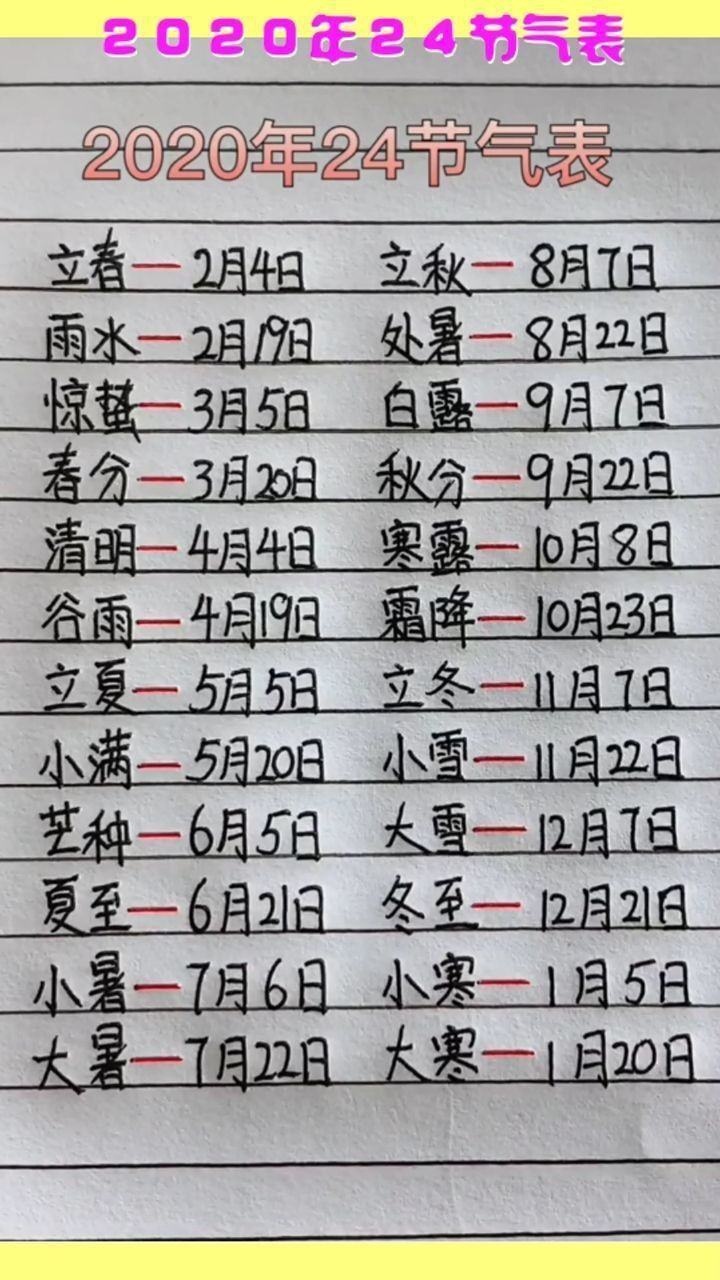 2020年24节气表
2020年24节气表
立春—2月4日 立秋—8月7日
雨水—2月19日 处暑—8月22日
惊蛰—3月5日 白露—9月7日
春分—3月20日 秋分—9月22日
清明—4月4日 寒露—10月8日
谷雨—4月19日 霜降—10月23日
立夏—5月5日 立冬—11月7日
小满—5月20日 小雪—11月22日
芒种—6月5日 大雪—12月7日
夏至—6月21日 冬至—12月21日
小暑—7月6日 小寒—1月5日
大暑—7月22日 大寒—1月20日